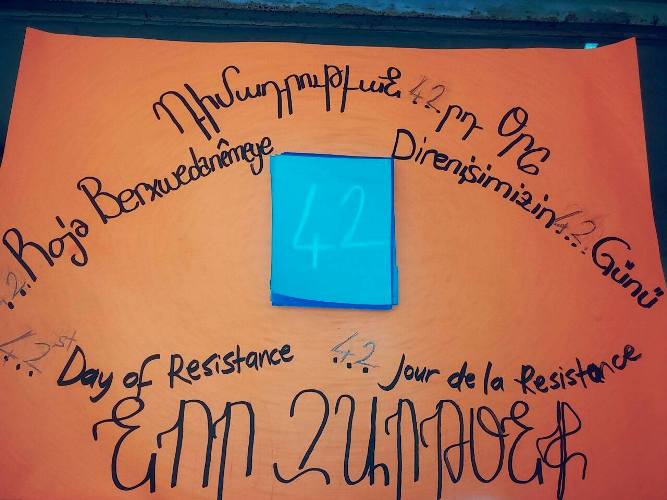 Դիմադրութեան 42րդ Օրը
42... Roja Berxwedanêmeye
Direnişimizin 42... Günü
42
42st... Day of Resistance
42... Jour de la Resistance
ՆՈՐ ԶԱՐԹՕՆՔ